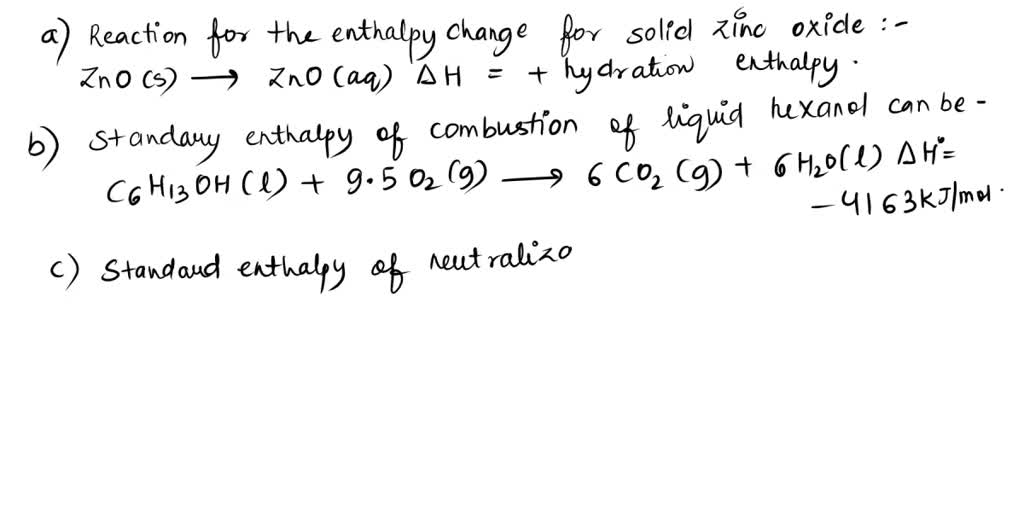 a) Reaction for the enthalpy change for solid zinc oxide :-
ZnO (s) → ZnO (aq) ΔH = + hydration enthalpy.
b) Standary enthalpy of combustion of liquid hexanol can be -
C6H13OH (l) + 9.5 O2 (g) → 6 CO2 (g) + 6 H2O (l) ΔH° =
- 4163 KJ/mol.
c) Standaud enthalpy of neutralizo